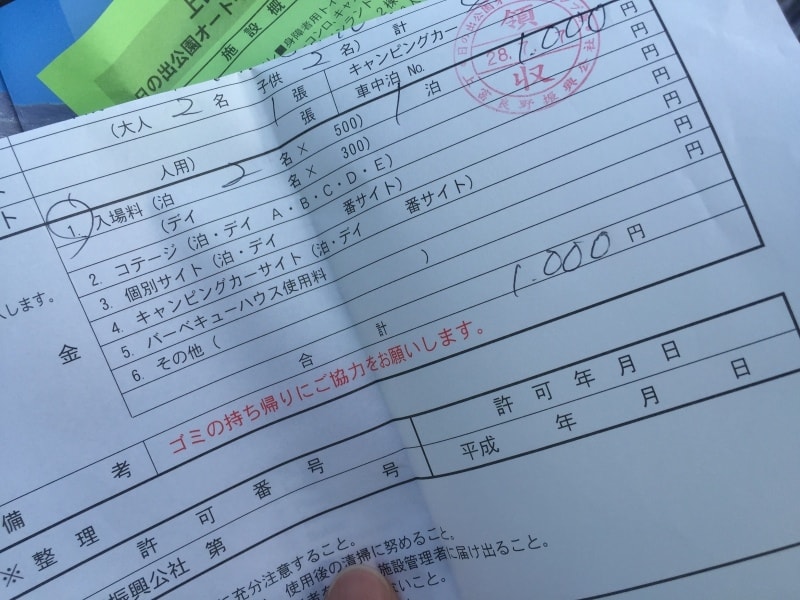 日の出公園オート
施設概
■身障者用トイ
コンロ、キャン
(大人 2 名 子供 2 名) 計
張 キャンピングカー
1 張 車中泊 No.
人用) 1 泊
領収
28.7.
1. 入場料 (泊 2 名 × 500) 1.000 円
(デイ 名 × 300) 円
2. コテージ (泊・デイ A・B・C・D・E) 円
3. 個別サイト (泊・デイ 番サイト) 円
4. キャンピングカーサイト (泊・デイ 番サイト)
5. バーベキューハウス使用料
6. その他 ( )
合計 1.000 円
金
します。
ゴミの持ち帰りにご協力をお願いします。
備考
許可年月日
※整理許可番号
平成 年 月 日
振興公社 第 号
に充分注意すること。
使用後の清掃に努めること。
施設管理者に届け出ること。
いこと。